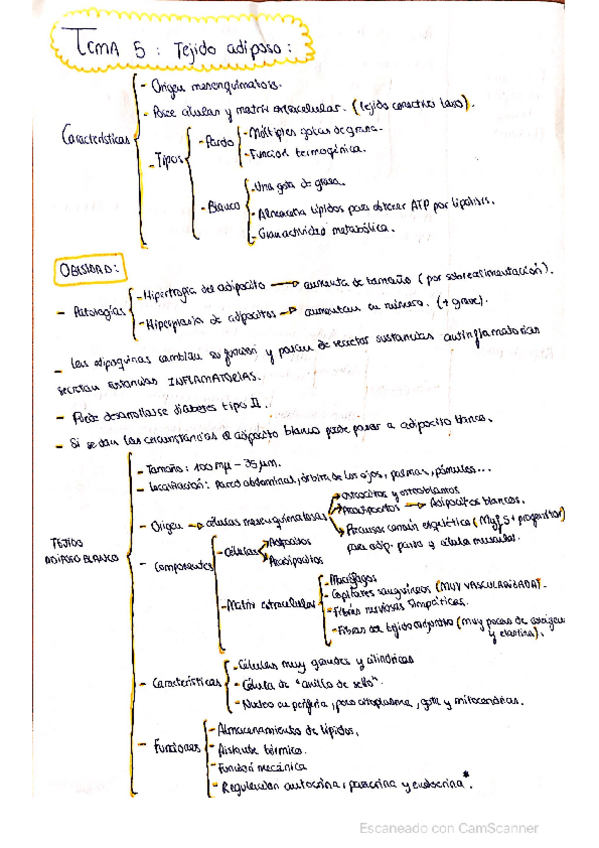 TEMA 5 : Tejido adiposo :
Características
- Origen mesenquimatosis.
- Posee células y matriz extracelular. (tejido conectivo laxo).
- Tipos
- Pardo
- Múltiples gotas de grasa.
- Función termogénica.
- Blanco
- Una gota de grasa.
- Almacena lípidos para obtener ATP por lipólisis.
- Gran actividad metabólica.
OBESIDAD:
- Patologías
- Hipertrofia del adipocito → aumenta de tamaño (por sobrealimentación).
- Hiperplasia de adipocitos → aumentan su número. (+ grave).
- Las adipoquinas cambian su función y pasan de secretar sustancias antinflamatorias
secretan sustancias INFLAMATORIAS.
- Puede desarrollarse diabetes tipo II.
- Si se dan las circunstancias el adipocito blanco puede pasar a adipocito blanco.
TEJIDO
ADIPOSO BLANCO
- Tamaño: 100 mμ - 35 μm.
- Localización: Pared abdominal, órbita de los ojos, palmas, pómulos...
- Origen → células mesenquimatosas
→ osteocitos y osteoblastos
→ Preadipocitos → Adipocitos blancos.
→ Precursor común esquelético (Myf5+ progenitor)
para adip. pardo y célula muscular.
- Componentes
- Células
→ Adipocitos
→ Preadipocitos
- Matriz extracelular
- Macrófagos
- Capilares sanguíneos (MUY VASCULARIZADA).
- Fibras nerviosas simpáticas.
- Fibras del tejido conjuntivo (muy pocas de colágeno
y elastina).
- Características
- Células muy grandes y cilíndricas
- Célula de "anillo de sello".
- Núcleo en periferia, poco citoplasma, golgi y mitocondrias.
- Funciones
- Almacenamiento de lípidos.
- Aislante térmico.
- Función mecánica
- Regulación autocrina, paracrina y endocrina*.
Escaneado con CamScanner